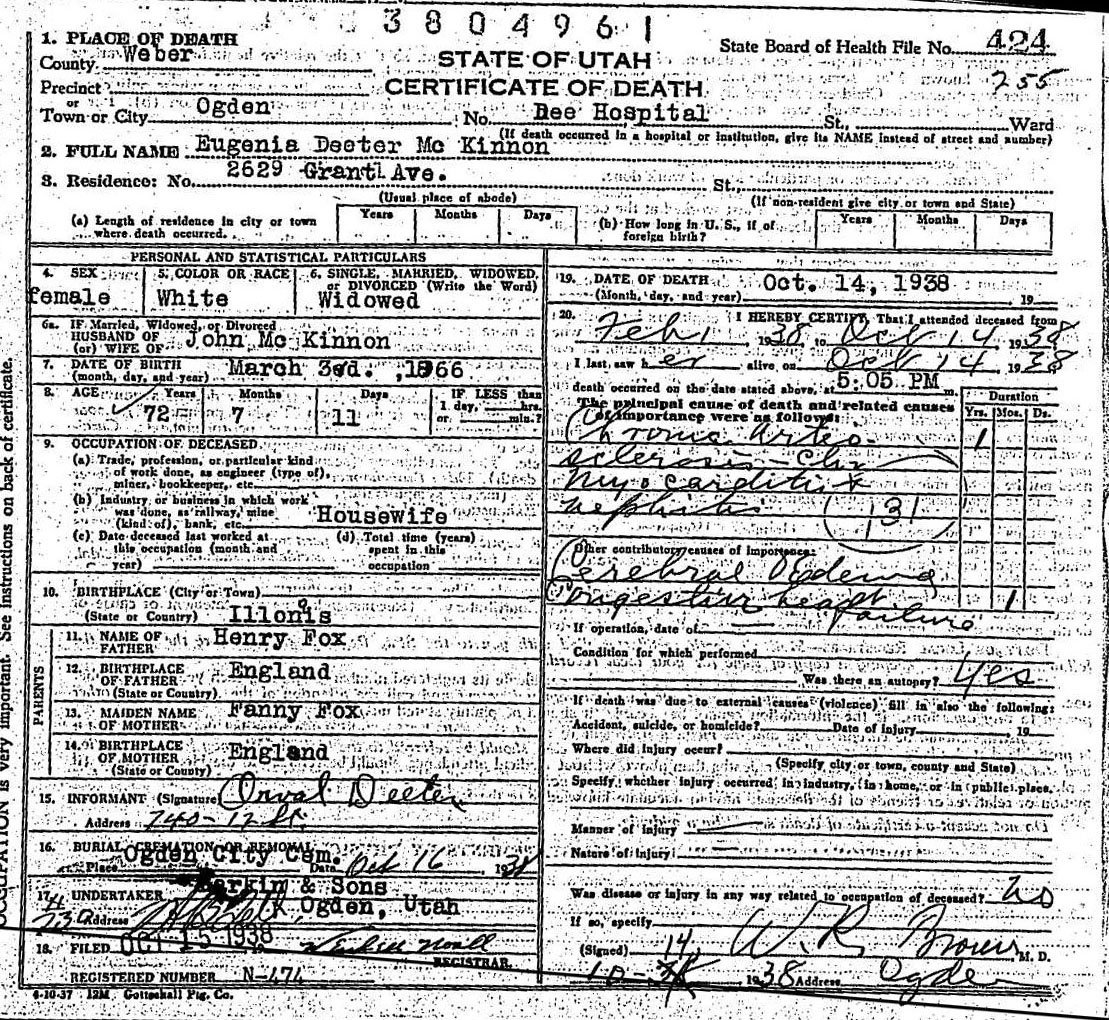 3804961
1. PLACE OF DEATH
County Weber
STATE OF UTAH
CERTIFICATE OF DEATH
State Board of Health File No. 424
255
Precinct
or
Town or City Ogden No. Dee Hospital St., Ward
(If death occurred in a hospital or institution, give its NAME instead of street and number)
2. FULL NAME Eugenia Deeter Mc Kinnon
3. Residence: No. 2629 Grant Ave. St.,
(Usual place of abode) (If non-resident give city or town and State)
(a) Length of residence in city or town where death occurred. Years Months Days (b) How long in U. S., if of foreign birth? Years Months Days
PERSONAL AND STATISTICAL PARTICULARS
4. SEX 5. COLOR OR RACE 6. SINGLE, MARRIED, WIDOWED, or DIVORCED (Write the Word)
female White Widowed
6a. If Married, Widowed, or Divorced
HUSBAND OF
(or) WIFE OF John Mc Kinnon
7. DATE OF BIRTH
(month, day, and year) March 3rd. , 1866
8. AGE Years Months Days IF LESS than
1 day, hrs.
or min.?
72 7 11
9. OCCUPATION OF DECEASED
(a) Trade, profession, or particular kind
of work done, as engineer (type of),
miner, bookkeeper, etc.
(b) Industry or business in which work
was done, as railway, mine
(kind of), bank, etc. Housewife
(c) Date deceased last worked at
this occupation (month and
year)
(d) Total time (years)
spent in this
occupation
10. BIRTHPLACE (City or Town)
(State or Country) Illonis
PARENTS
11. NAME OF
FATHER Henry Fox
12. BIRTHPLACE
OF FATHER England
(State or Country)
13. MAIDEN NAME
OF MOTHER Fanny Fox
14. BIRTHPLACE
OF MOTHER England
(State or County)
15. INFORMANT (Signature) Orval Deeter
Address 740 - 12 St.
16. BURIAL, CREMATION OR REMOVAL
Place Ogden City Cem. Date Oct 16 1938
17. UNDERTAKER Larkin & Sons
Address Ogden, Utah
18. FILED OCT 15 1938
REGISTRAR.
REGISTERED NUMBER N-474
4-10-37 12M Gottschall Ptg. Co.
19. DATE OF DEATH Oct. 14, 1938
(Month, day, and year) 19
20. I HEREBY CERTIFY, That I attended deceased from
Feb 1 1938 to Oct 14 1938
I last saw her alive on Oct 14 1938
death occurred on the date stated above, at 5:05 PM m.
The principal cause of death and related causes
of importance were as follows:
Duration
Yrs. Mos. Ds.
Chronic Arterio- 1
sclerosis - Chr
Myocarditis &
nephritis 131
Other contributory causes of importance:
Cerebral Oedema
Congestive heart failure 1
If operation, date of
Condition for which performed
Was there an autopsy? Yes
If death was due to external causes (violence) fill in also the following:
Accident, suicide, or homicide? Date of injury 19
Where did injury occur?
(Specify city or town, county and State)
Specify whether injury occurred in industry, in home, or in public place.
Manner of injury
Nature of injury
Was disease or injury in any way related to occupation of deceased? No
If so, specify
(Signed) W. R. Brown, M. D.
14
1938 Address Ogden
OCCUPATION is very important. See instructions on back of certificate.